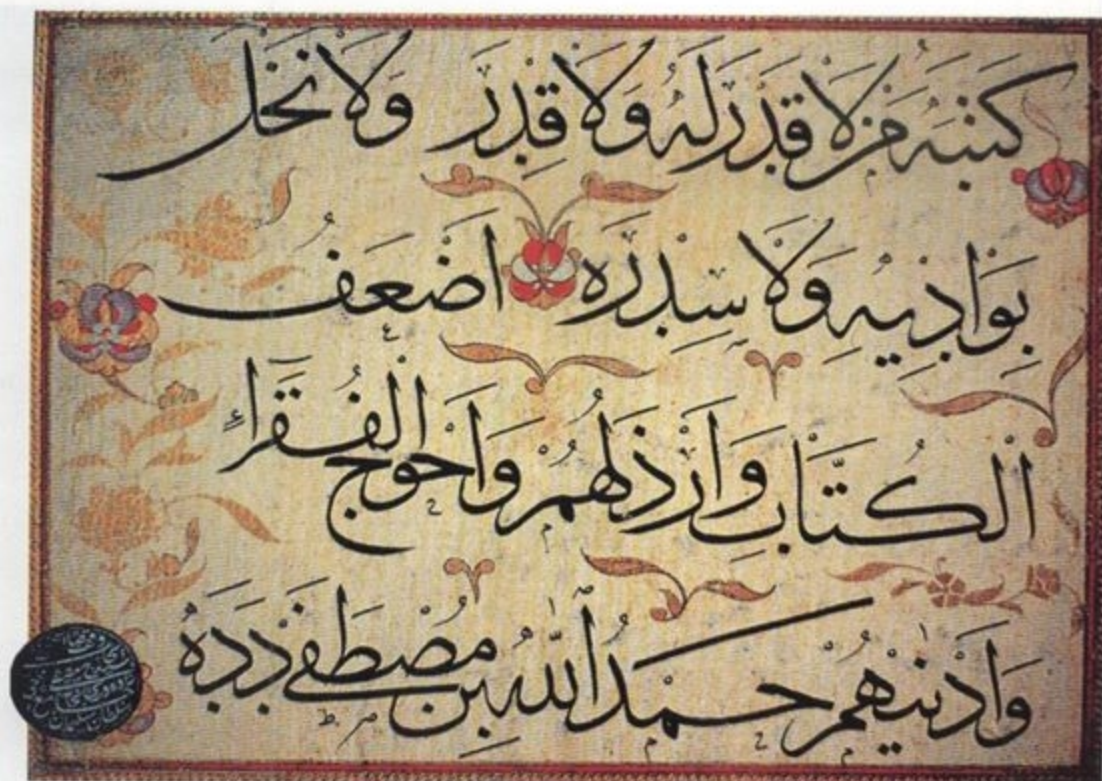 كتبه من لا قَدْرَ لَهُ وَلَا قِدْرَ وَلَا نَخْلَ
بِوَادِيهِ وَلَا سِدْرَه اَضْعَفُ
الْكُتَّابِ وَاَرْذَلُهُمْ وَاَحْوَجُ الْفُقَرَاءِ
وَاَدْنَيهُمْ حَمْدُ اللّٰهِ بِن مُصْطَفٰى دَدَه